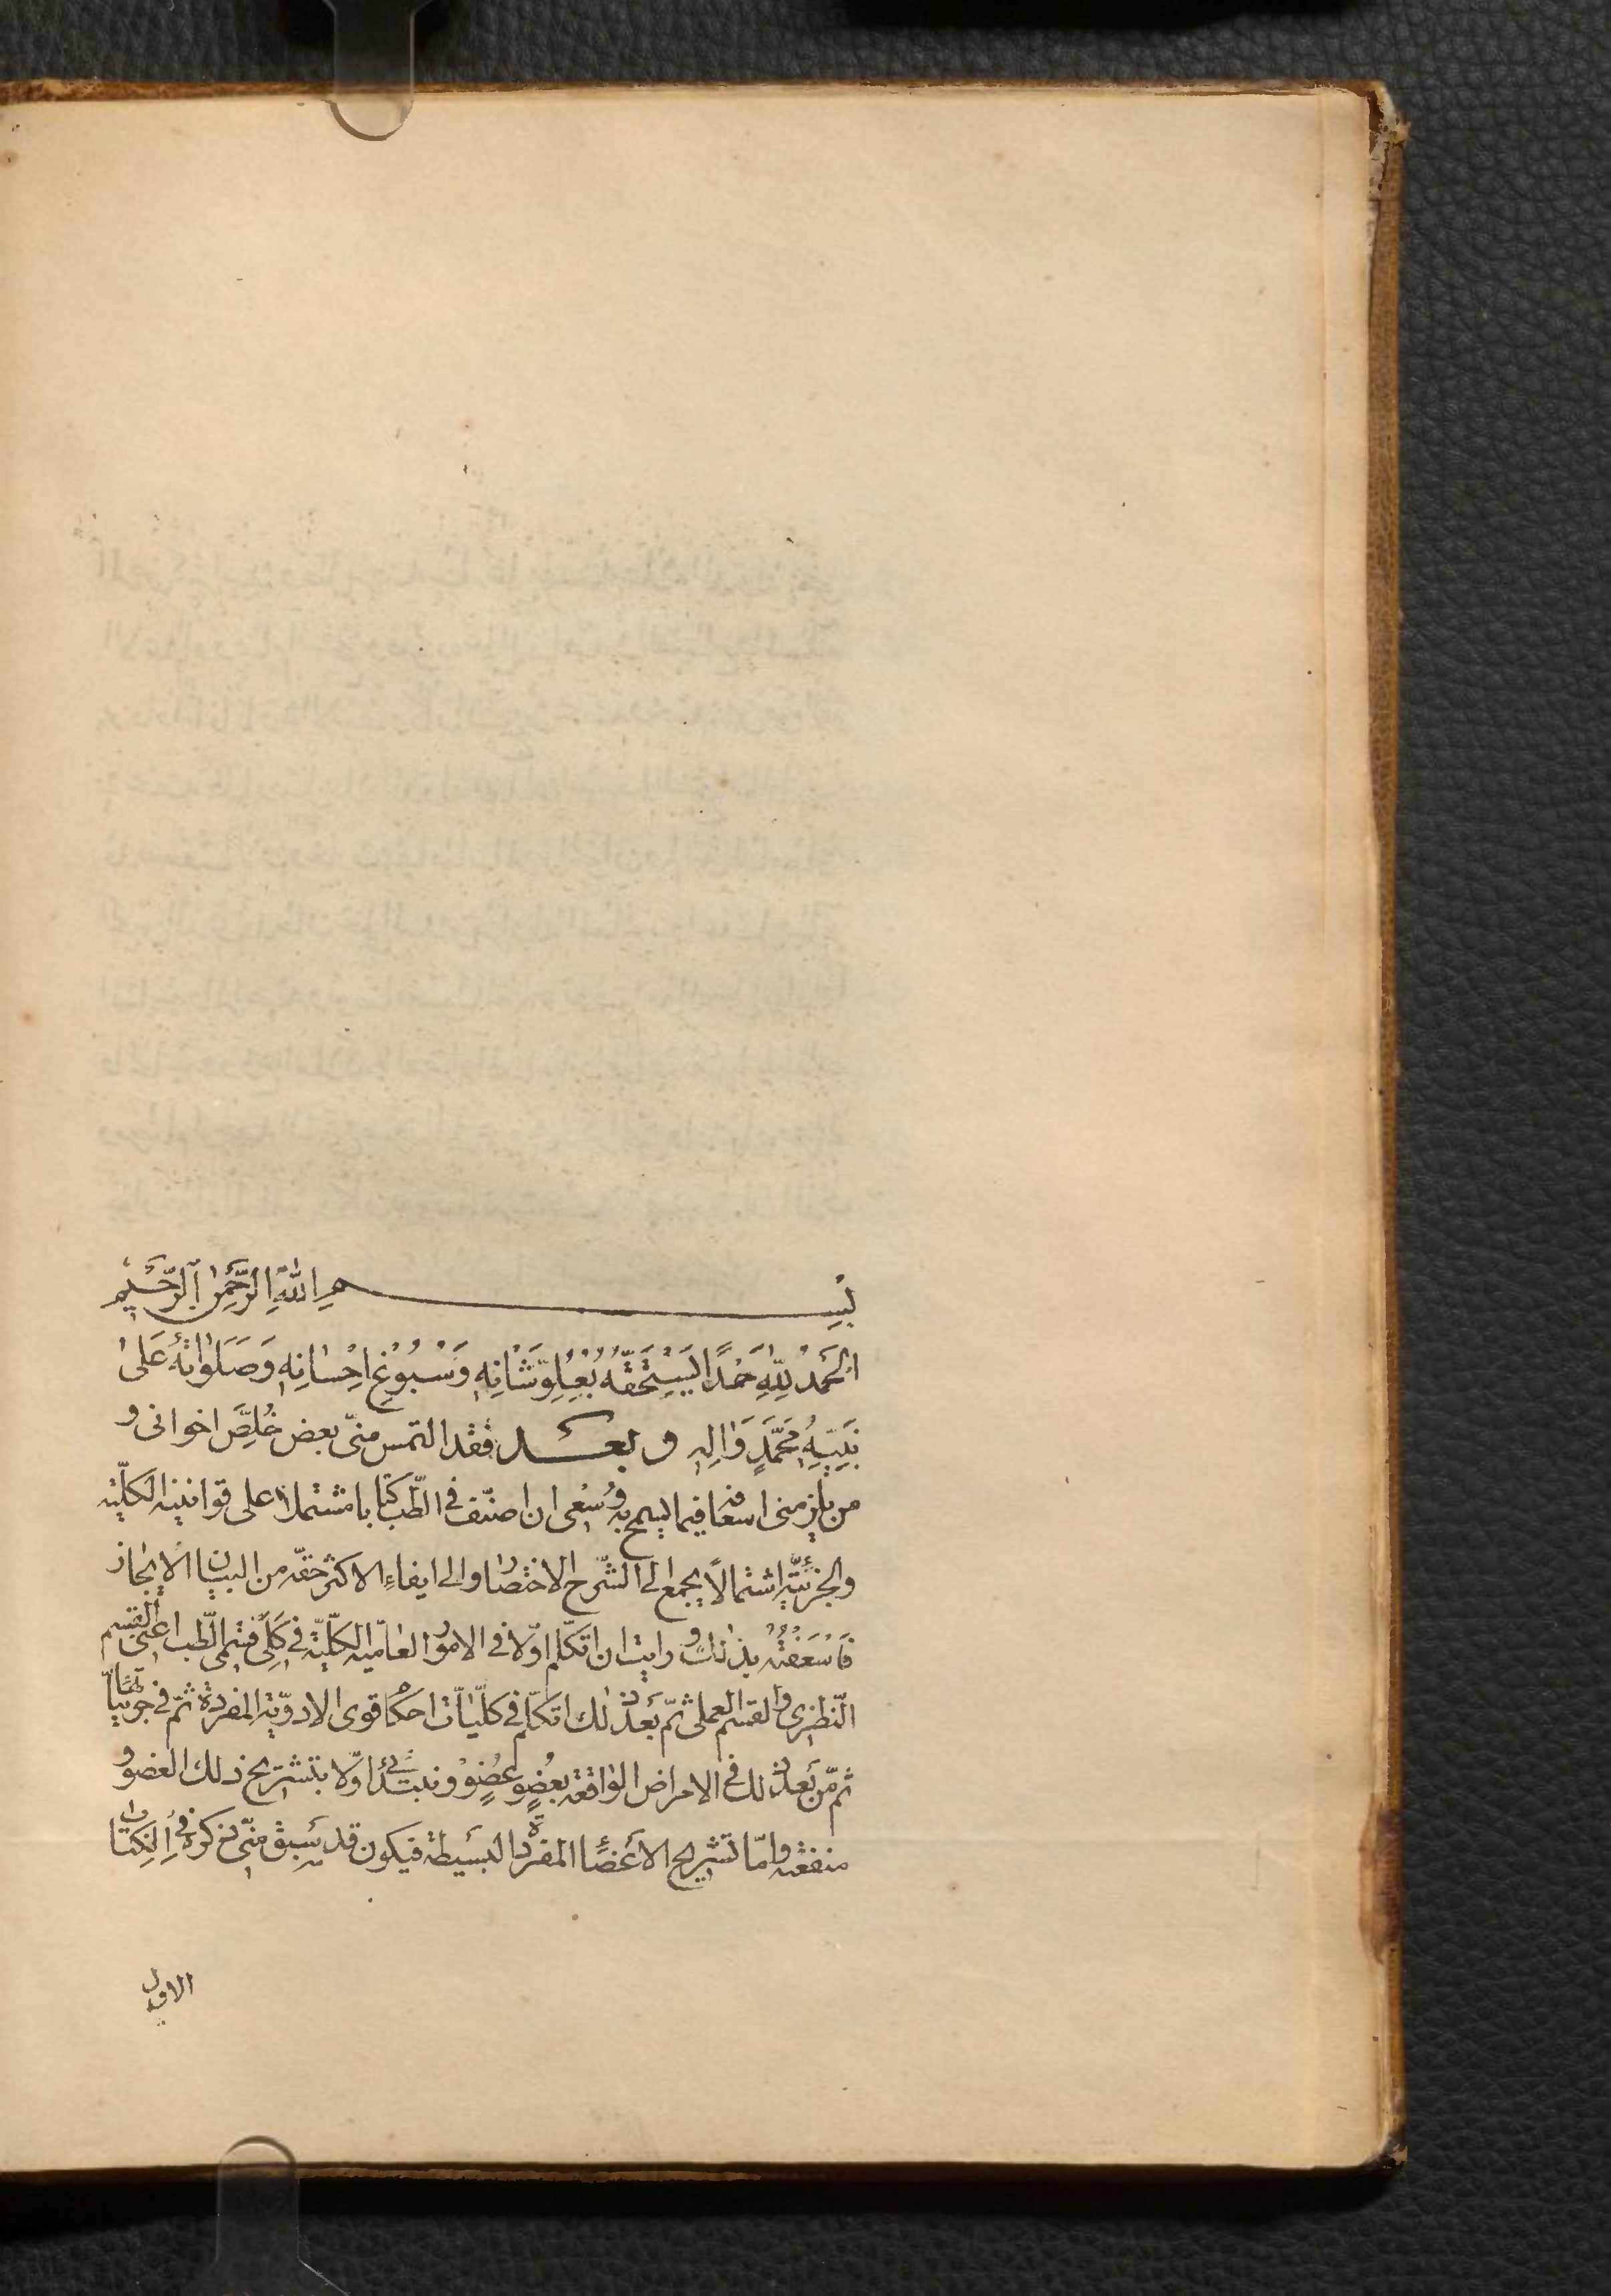 بِسْمِ اللّٰهِ الرَّحْمٰنِ الرَّحِيْمِ
الْحَمْدُ لِلّٰهِ حَمْدًا يَسْتَحِقُّهُ بِعُلُوِّ شَانِهِ وَسُبُوْغِ اِحْسَانِهِ وَصَلَوٰاتُهُ عَلىٰ
نَبِيِّهِ مُحَمَّدٍ وَاٰلِهِ وبعــد فقد التمس منّى بعض خُلَّصِ اخوانى و
من يلزمنى اسعافه فيما يسمح به وُسْعِى ان اصنّف فى الطّب كتابا مشتملا على قوانينه الكلّيّة
والجزئيّة اشتمالًا يجمع الى الشّرح الاختصار والى ايفاءِ الاكثر حقّه من البيان الايجاز
فَاَسْعَفْتُهُ بذٰلك ورايت ان اتكلّم اوّلا فى الامور العامّيه الكلّيّة فى كلى قسمى الطّب اعنى القسم
النّظرى والقسم العملى ثمّ بَعد ذٰلك اتكلّم فى كلّيّات احكام قوى الادويّة المفردة ثمّ فى جزئيّاتها
ثمّ من بَعد ذٰلك فى الامراض الواقعة بعُضوٍ عُضوٍ ونبتدئ اوّلا بتشريح ذلك العضو و
منفعته وامّا تشريح الاَعْضَاء المفردة البَسيطة فيكون قد سَبق منّى ذكره فى الكتاب
الاوّل